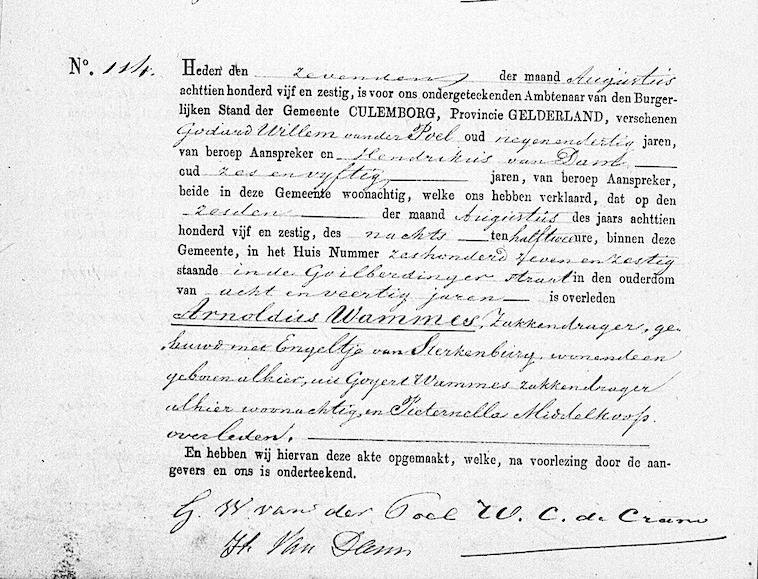 No. 114. Heden den zevenden der maand Augustus
achttien honderd vijf en zestig, is voor ons ondergeteekenden Ambtenaar van den Burger-
lijken Stand der Gemeente CULEMBORG, Provincie GELDERLAND, verschenen
Godard Willem van der Poel oud negenendertig jaren,
van beroep Aanspreker en Hendrikus van Dam
oud zes en vyftig jaren, van beroep Aanspreker,
beide in deze Gemeente woonachtig, welke ons hebben verklaard, dat op den
zesden der maand Augustus des jaars achttien
honderd vijf en zestig, des nachts ten half twee ure, binnen deze
Gemeente, in het Huis Nummer zeshonderd zeven en zestig
staande in de Goilberdinger straat in den ouderdom
van acht en veertig jaren is overleden
Arnoldus Wammes, Zakkendrager, ge-
huwd met Engeltje van Sterkenburg, wonende en
geboren alhier, uit Goyert Wammes zakkendrager
alhier woonachtig, en Pieternella Middelkoop.
overleden.
En hebben wij hiervan deze akte opgemaakt, welke, na voorlezing door de aan-
gevers en ons is onderteekend.
G. W. van der Poel W. C. de Crane
H. Van Dam